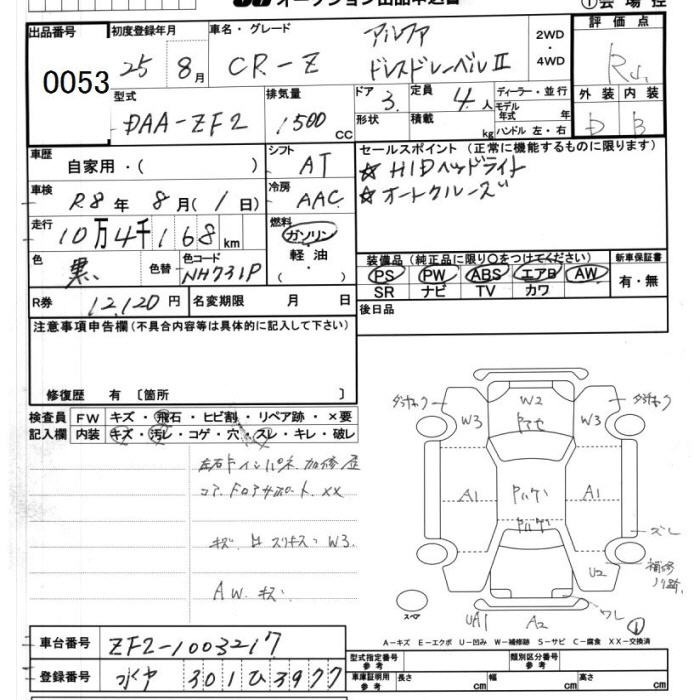 オークション出品申込書 ①会場控
出品番号 初度登録年月 車名・グレード アルファ 2WD・4WD 評価点
0053 25 8月 CR-Z ドレスドレーベルⅡ
型式 排気量 ドア 3 定員 4人 ディーラー・並行 外装 内装
DAA-ZF2 1500cc 形状 積載 kg モデル年式 年 ハンドル 左・右 D B
車歴 自家用・( ) シフト AT セールスポイント (正常に機能するものに限ります)
車検 R8年 8月(1日) 冷房 AAC ☆HIDヘッドライト
☆オートクルーズ
走行 10万4千168km 燃料 ガソリン・軽油・( )
色 黒 色替 色コード NH731P 装備品 (純正品に限り○をつけてください) 新車保証書
PS PW ABS エアB AW 有・無
SR ナビ TV カワ
R券 12,120円 名変期限 月 日 後日品
注意事項申告欄 (不具合内容等は具体的に記入して下さい)
修復歴 有 〔箇所 〕
検査員記入欄 FW キズ・飛石・ヒビ割・リペア跡・×要
内装 キズ・汚レ・コゲ・穴・スレ・キレ・破レ
コア、ドロアサポート、XX
W3
AW キズ
W2
W3 W3
A1 A1
U2
スペア UA1 A2 ワレ ①
A-キズ E-エクボ U-凹み W-補修跡 S-サビ C-腐食 XX-交換済
車台番号 ZF2-1003217
型式指定番号 参考 類別区分番号 参考
登録番号 301 ひ 3977
車庫証明用 参考 長さ cm 幅 cm 高さ cm